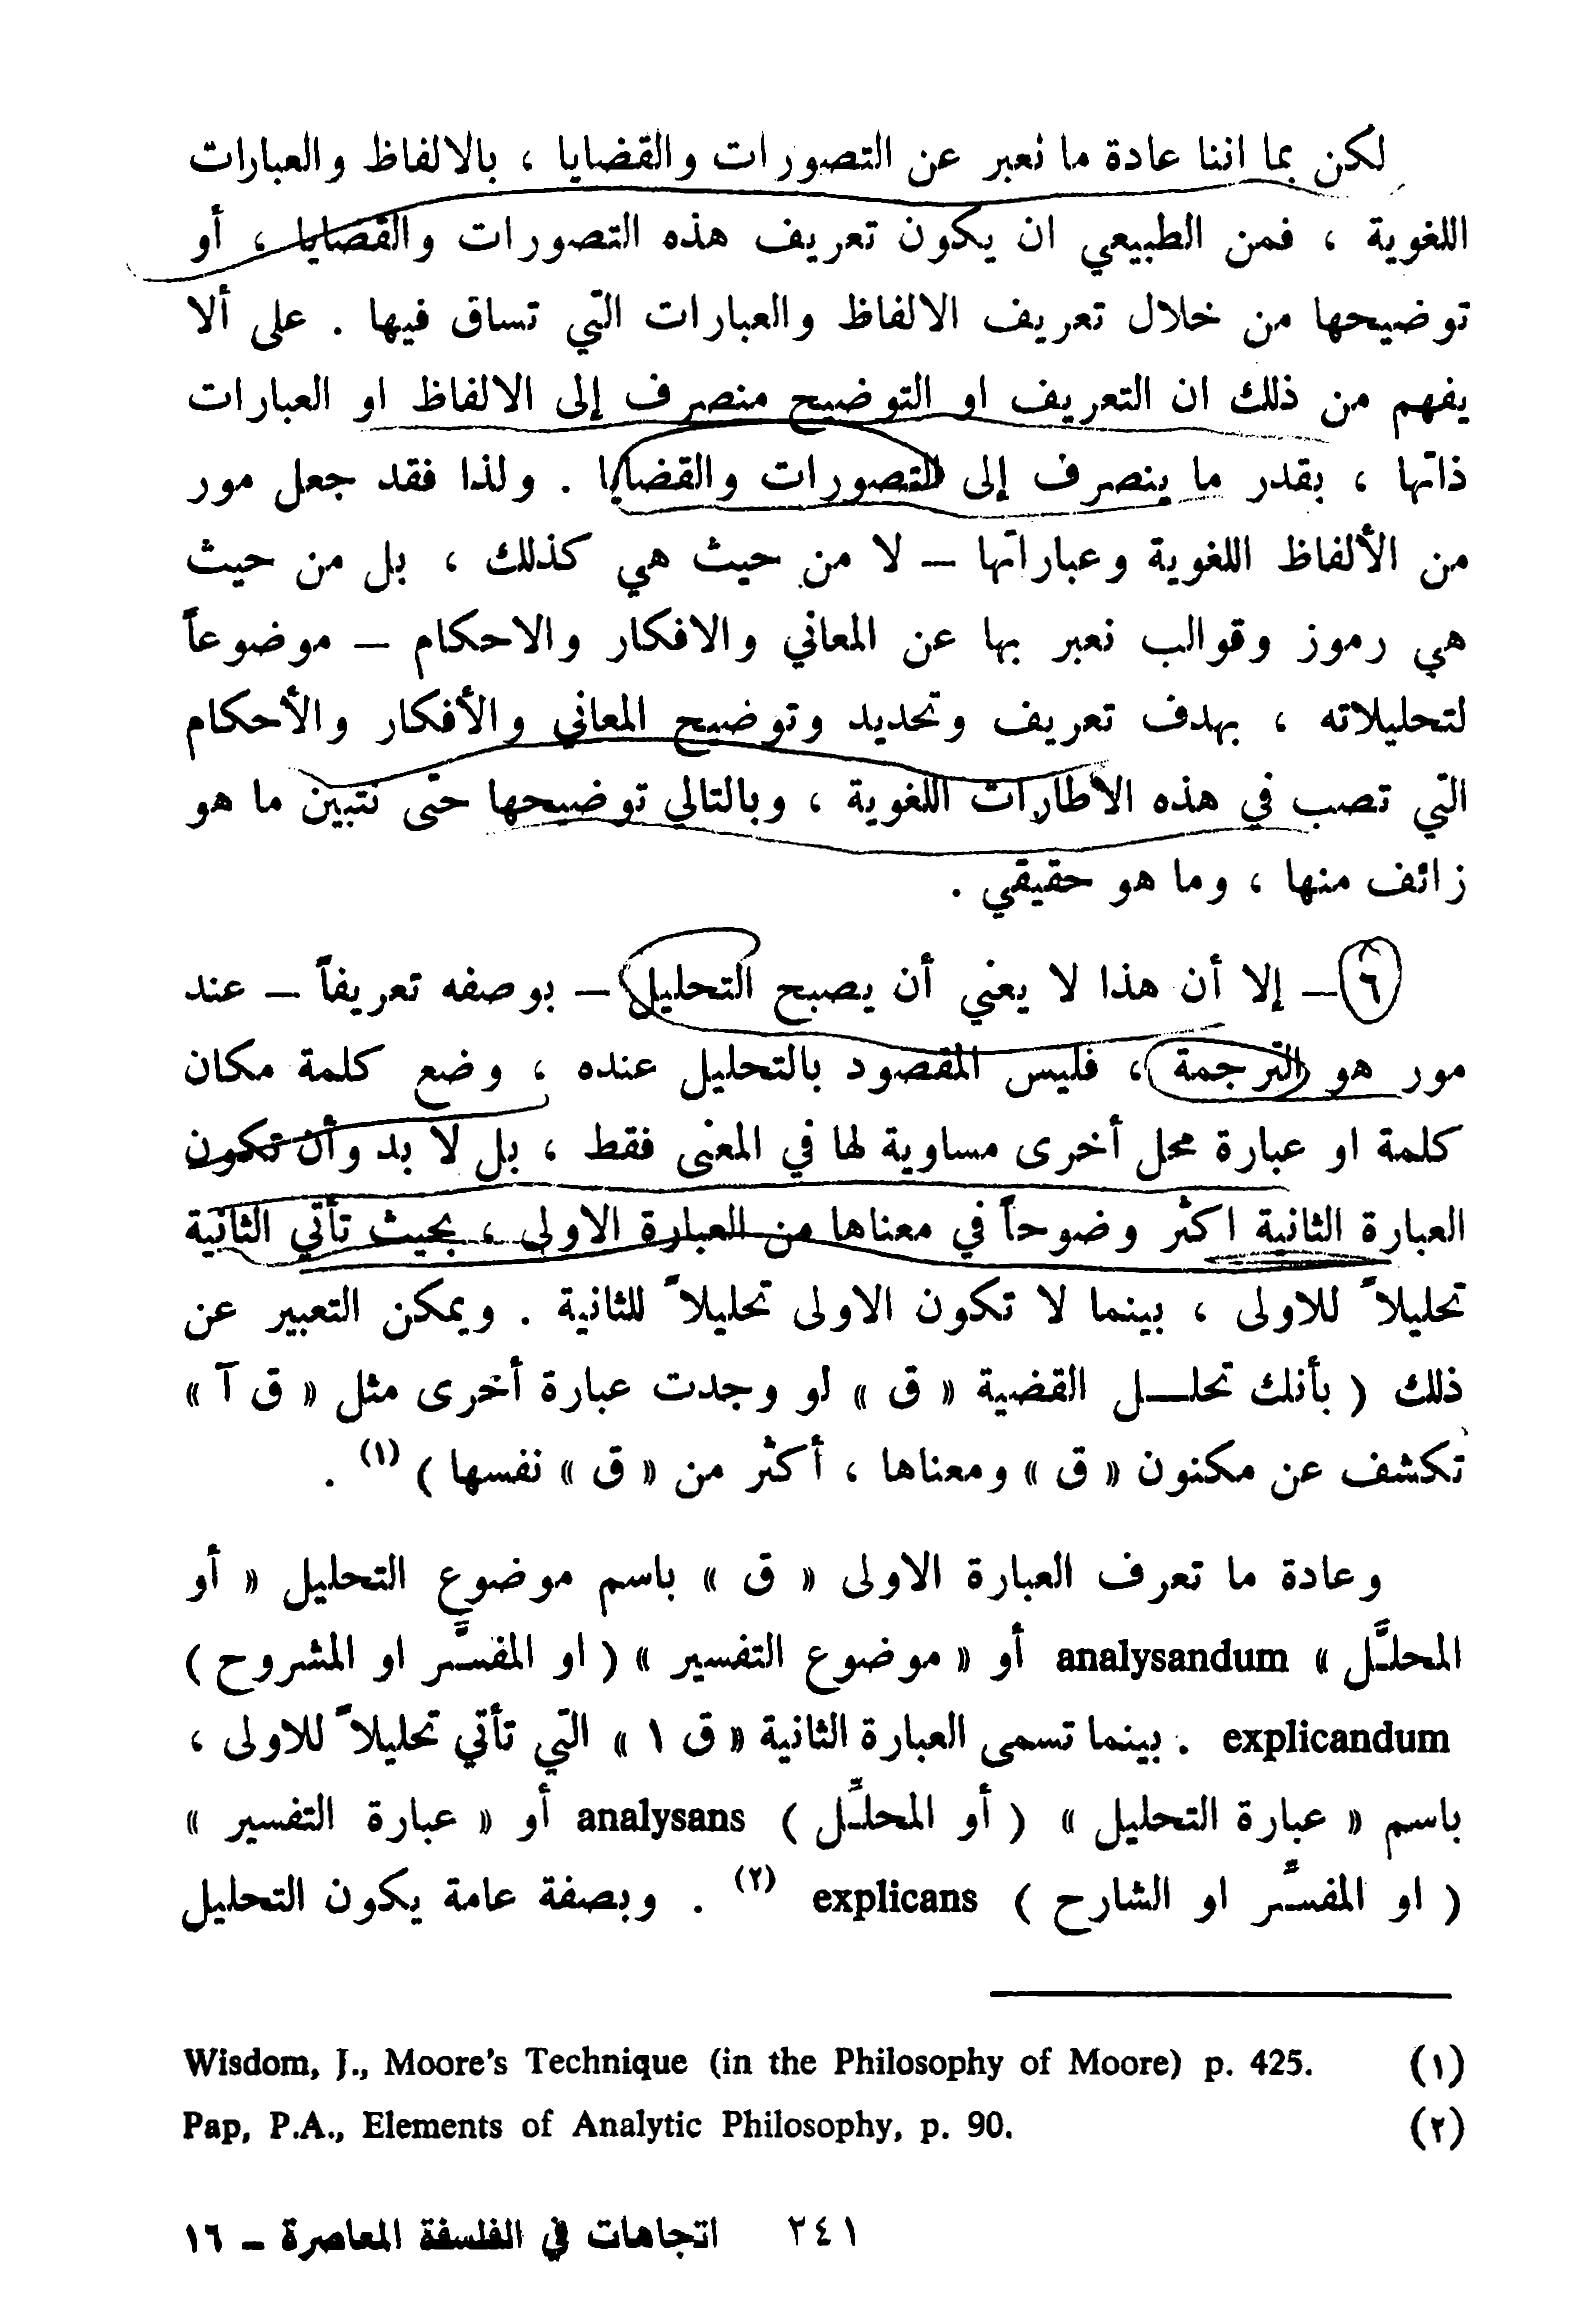 لكن بما اننا عادة ما نعبر عن التصورات والقضايا ، بالالفاظ والعبارات
اللغوية ، فمن الطبيعي ان يكون تعريف هذه التصورات والقضايا ، أو
توضيحها من خلال تعريف الالفاظ والعبارات التي تساق فيها . على ألا
يفهم من ذلك ان التعريف او التوضيح منصرف إلى الالفاظ او العبارات
ذاتها ، بقدر ما ينصرف إلى التصورات والقضايا . ولذا فقد جعل مور
من الألفاظ اللغوية وعباراتها – لا من حيث هي كذلك ، بل من حيث
هي رموز وقوالب نعبر بها عن المعاني والافكار والاحكام – موضوعاً
لتحليلاته ، بهدف تعريف وتحديد وتوضيح المعاني والأفكار والأحكام
التي تصب في هذه الأطارات اللغوية ، وبالتالي توضيحها حتى نتبين ما هو
زائف منها ، وما هو حقيقي .
٦ – إلا أن هذا لا يعني أن يصبح التحليل – بوصفه تعريفاً – عند
مور هو الترجمة ، فليس المقصود بالتحليل عنده ، وضع كلمة مكان
كلمة او عبارة محل أخرى مساوية لها في المعنى فقط ، بل لا بد وأن تكون
العبارة الثانية اكثر وضوحاً في معناها من العبارة الاولى ، بحيث تأتي الثانية
تحليلاً للاولى ، بينما لا تكون الاولى تحليلاً للثانية . ويمكن التعبير عن
ذلك ( بأنك تحلـــل القضية « ق » لو وجدت عبارة أخرى مثل « ق آ »
تكشف عن مكنون « ق » ومعناها ، أكثر من « ق » نفسها ) (١) .
وعادة ما تعرف العبارة الاولى « ق » باسم موضوع التحليل « أو
المحلَّل » analysandum أو « موضوع التفسير » ( او المفسَّر او المشروح )
explicandum . بينما تسمى العبارة الثانية « ق ١ » التي تأتي تحليلاً للاولى ،
باسم « عبارة التحليل » ( أو المحلِّل ) analysans أو « عبارة التفسير »
( او المفسِّر او الشارح ) explicans (٢) . وبصفة عامة يكون التحليل
Wisdom, J., Moore's Technique (in the Philosophy of Moore) p. 425. (١)
Pap, P.A., Elements of Analytic Philosophy, p. 90. (٢)
٢٤١ اتجاهات في الفلسفة المعاصرة – ١٦